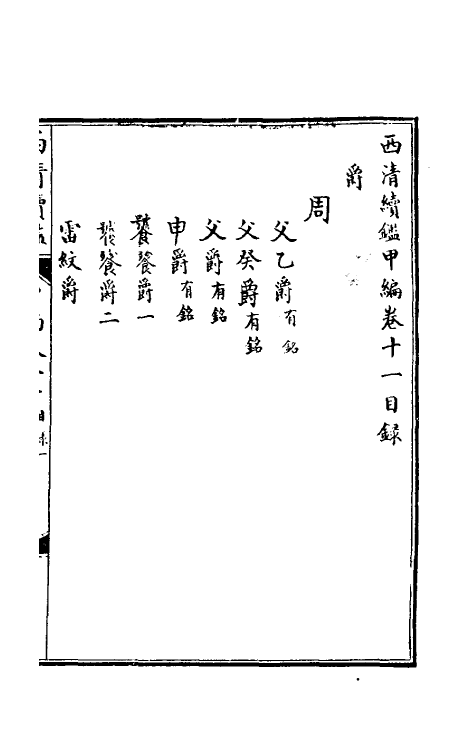 西清續鑑甲編卷十一目録
爵
周
父乙爵有銘
父癸爵有銘
父爵有銘
申爵有銘
饕餮爵一
饕餮爵二
雷紋爵